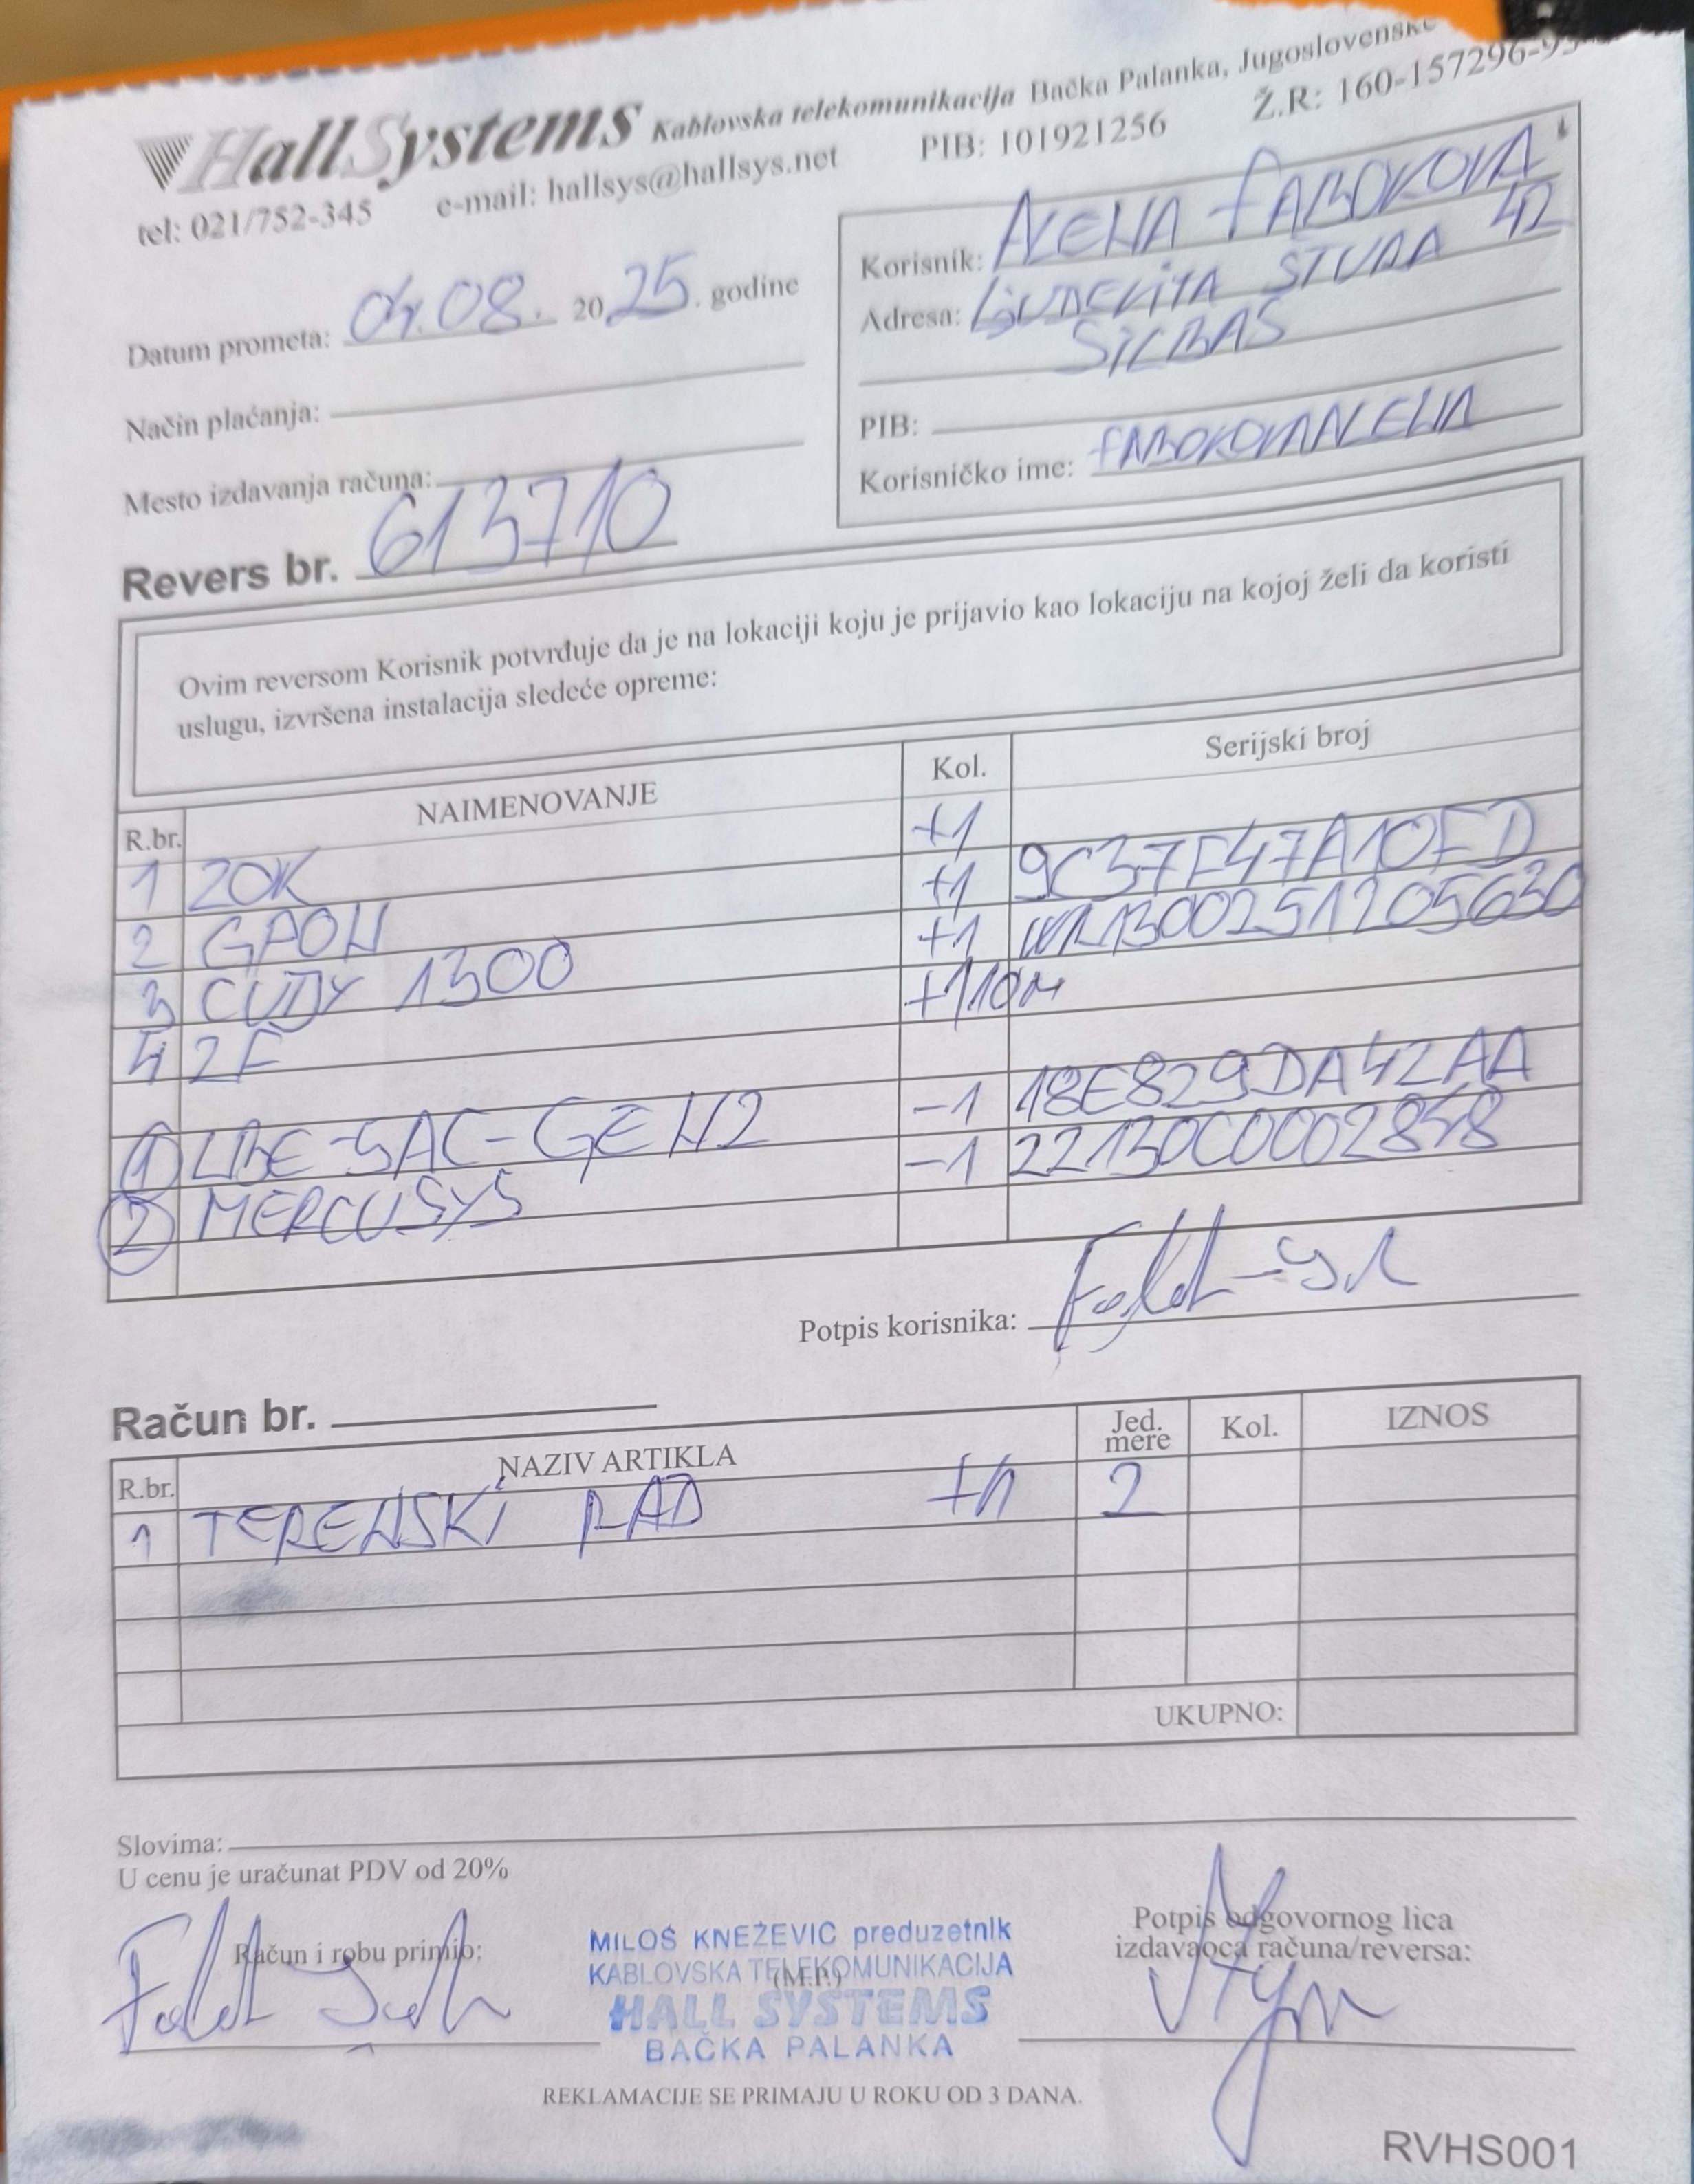 HallSystems Kablovska telekomunikacija Bačka Palanka, Jugoslovenske
tel: 021/752-345 e-mail: hallsys@hallsys.net PIB: 101921256 Ž.R: 160-157296-95
Datum prometa: 04.08. 2025. godine
Način plaćanja:
Mesto izdavanja računa:
Korisnik: ALENA FABOKOVA
Adresa: LJUDEVITA ŠTURA 42
SILBAŠ
PIB:
Korisničko ime: FABOKOVAALENA
Revers br. 613710
Ovim reversom Korisnik potvrđuje da je na lokaciji koju je prijavio kao lokaciju na kojoj želi da koristi
uslugu, izvršena instalacija sledeće opreme:
R.br. NAIMENOVANJE Kol. Serijski broj
1 ZOK +1
2 GPON +1 9C37F47A10FD
3 CUDY 1300 +1 WR1300251205630
4 2F +110M
1 LBE-5AC-GEN2 -1 18E829DA42AA
2 MERCUSYS -1 22130C0002848
Potpis korisnika:
Račun br.
R.br. NAZIV ARTIKLA Jed. mere Kol. IZNOS
1 TERENSKI RAD +h 2
UKUPNO:
Slovima:
U cenu je uračunat PDV od 20%
Račun i robu primio:
MILOŠ KNEŽEVIĆ preduzetnik
KABLOVSKA TELEKOMUNIKACIJA
(M.P.)
HALL SYSTEMS
BAČKA PALANKA
Potpis odgovornog lica
izdavaoca računa/reversa:
REKLAMACIJE SE PRIMAJU U ROKU OD 3 DANA.
RVHS001